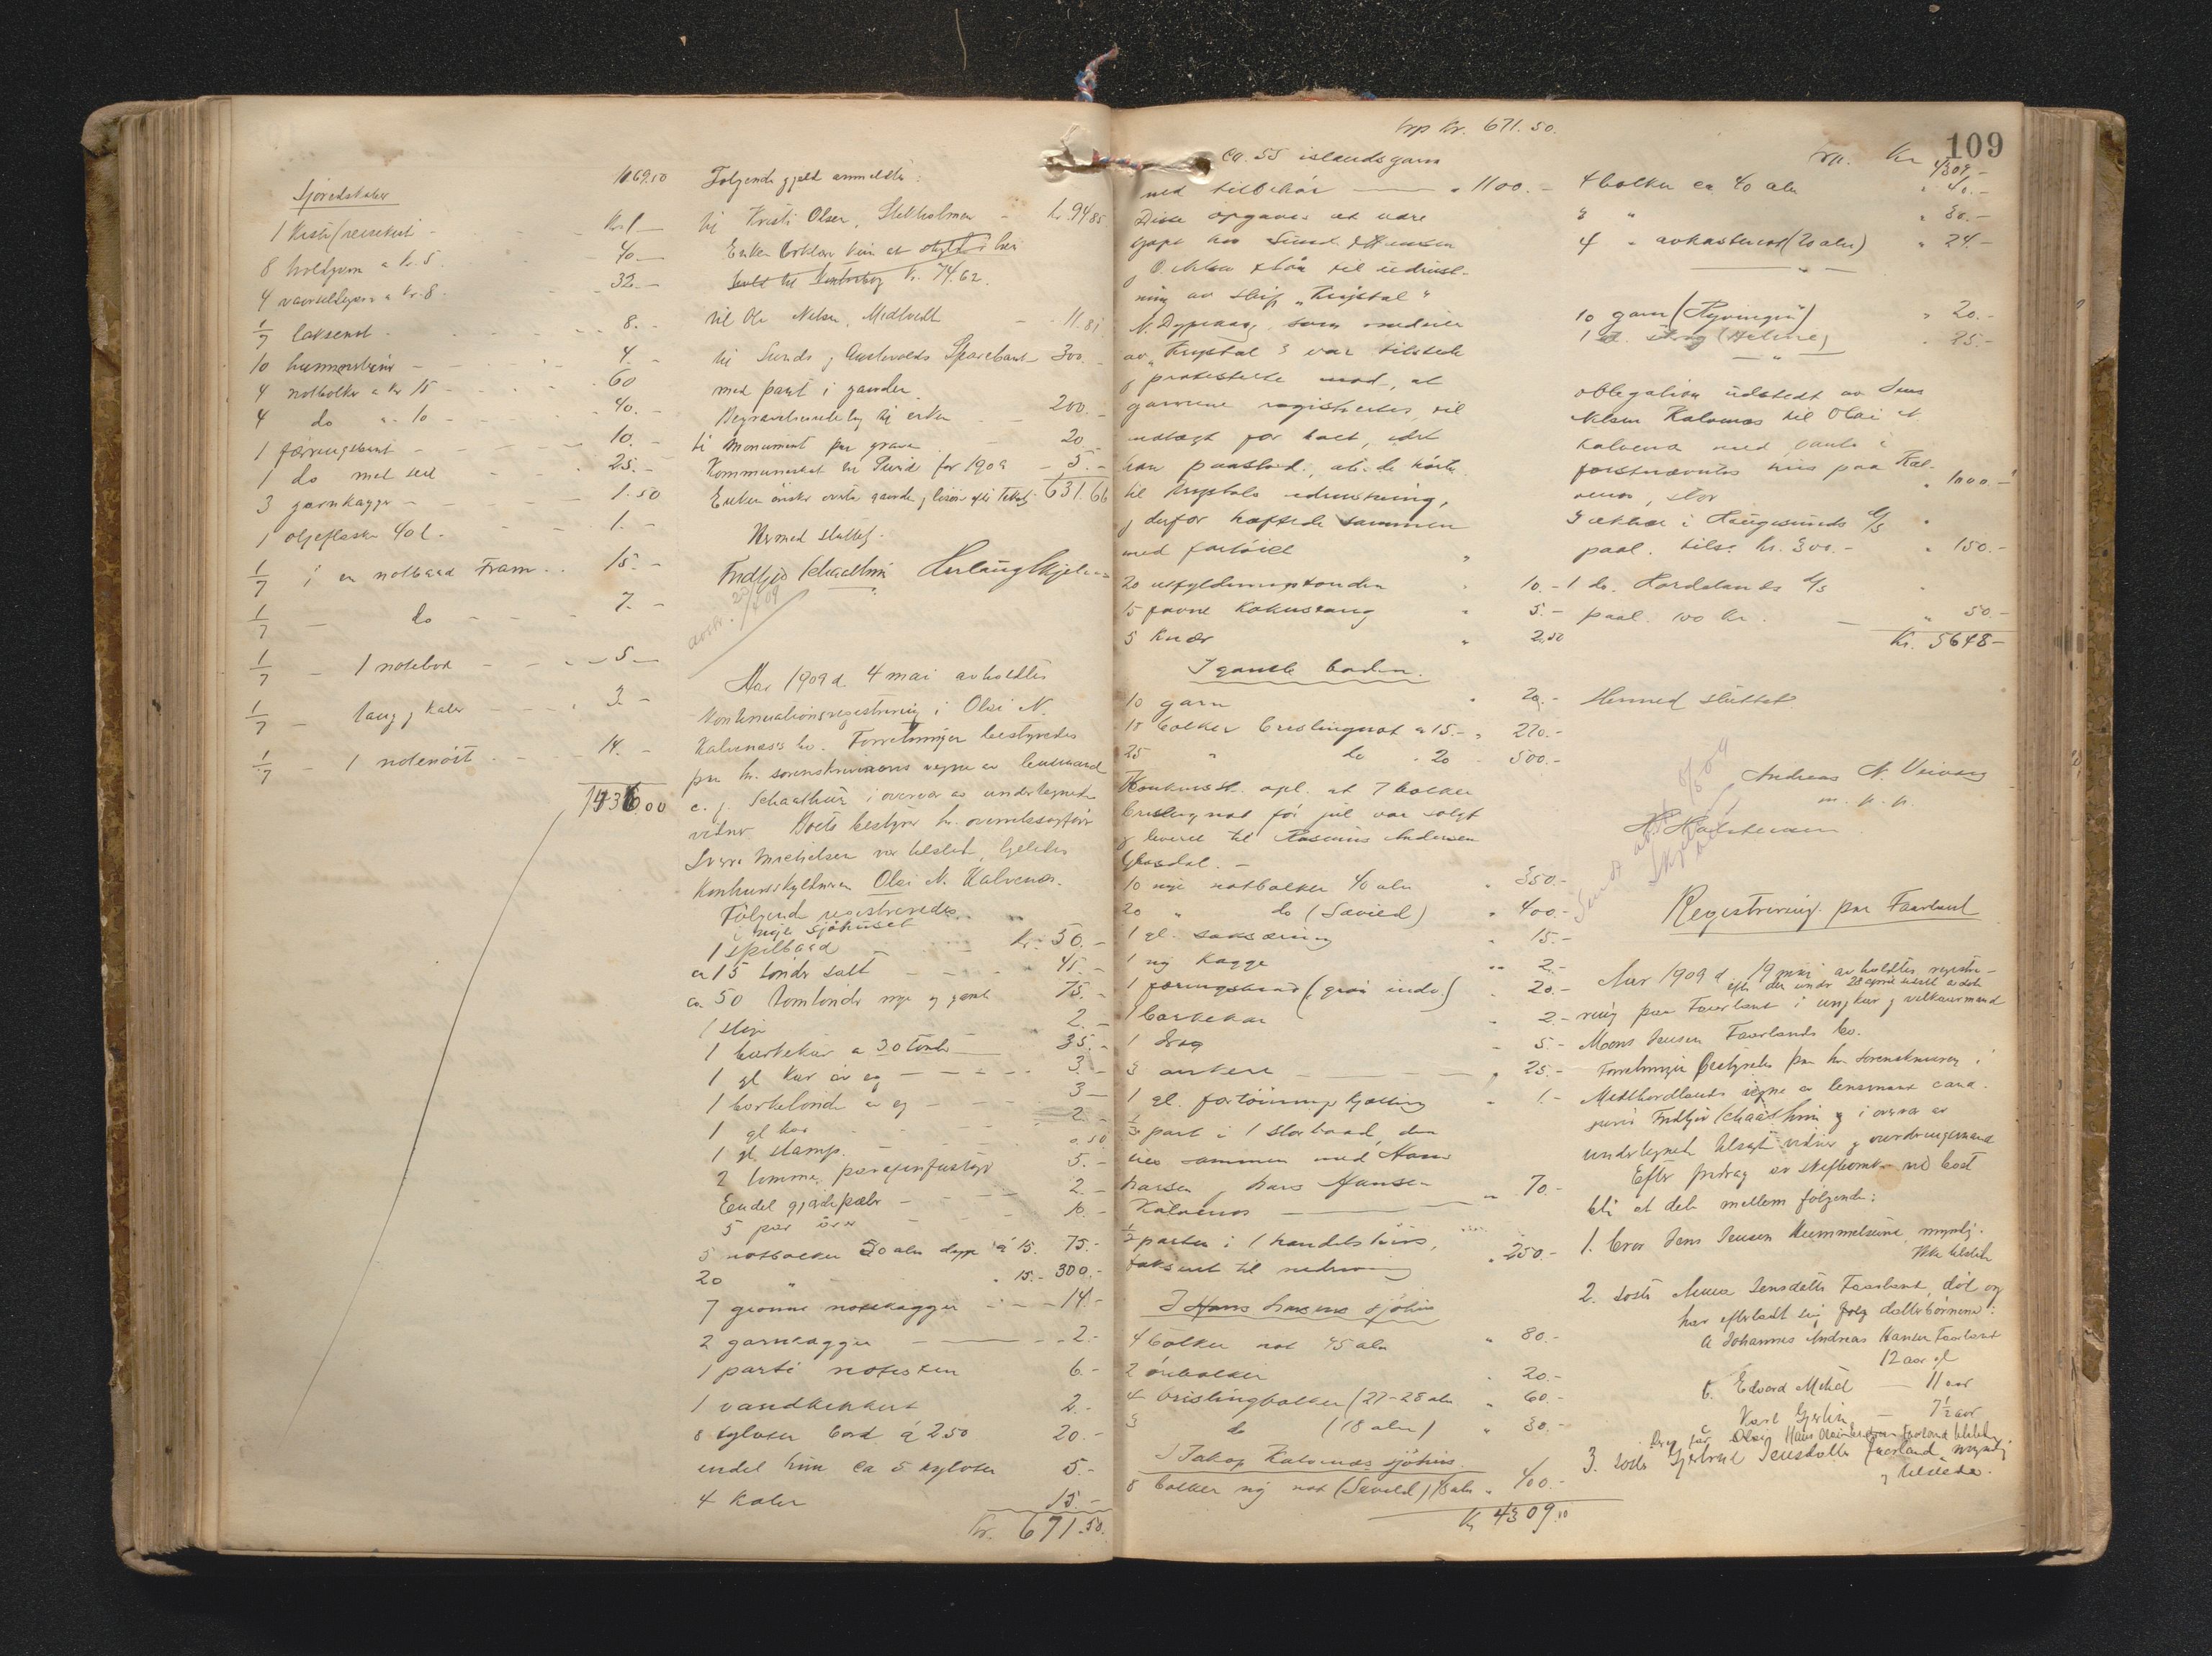 Sjøredskaber 1069.50
1 kiste/reisekist - Kr. 1 -
8 torskgarn a kr. 5. 40 -
4 vaarsildgarn a kr. 8. 32. -
1/7 laksenot. 8. -
10 hummerteiner - 4. -
4 notbolker a kr 15 - 60
4 do a - 10 - 40. -
1 færingsbaat - 10. -
1 do med seil 25. -
3 garnkagger - 1.50
1 oljeflaske 40 l. 1. -
1/7 i en notbaad Fram .. 15. -
1/7 - do 7. -
1/7 - 1 notebod - 5 -
1/7 - taug & kabler - 3 -
1/7 - 1 notenøst 14. -
1436.00
Følgende gjeld anmeldte:
til Kristi Olsen, Stekholmen - kr. 94.85
Enken erklær kun at skyld i hei
Landhandleri kr. 74.62.
til Ole Nelsen, Midtvedt - 11.81
til Sunds & Austevolds Sparebank 300. -
med pant i gaarden.
Begravelsesutlæg til enken 200. -
til Monument paa graven - 20. -
Kommuneskat til Sund for 1909 - 5. -
631.66
Enken ønsker overta gaarden & løsøre efter Takst.
Hermed sluttet.
Fridtjov Schaathun Herlaug Skjelnes
avskr. 29/4 09
Aar 1909 d. 4 mai avholdtes
konkursregistrering i Olai N.
Kalvenæs's bo. Forretningen bestyredes
paa hr. sorenskriverens vegne av lensmand
c. j. Schaathun i overvær av undertegnede
vidner. Boets bestyrer hr. overretssagfører
Sverre Michelsen var tilstede, ligeledes
Konkursskyldneren Olai N. Kalvenæs.
Følgende registreredes
i nye sjøhuset
1 spilbaad - kr. 50. -
ca 15 tønder salt - 45. -
ca 50 tomtønder nye og gamle 75. -
1 slip 2. -
1 barkekar a 30 tønder 35. -
1 gl kar av eg - 3. -
1 barketønde av eg - 3 -
1 gl kar 2. -
1 gl. stamp. 0.50
2 tomme parafinfustager 5. -
Endel gjærdepæler - 2. -
5 par årer 10. -
5 notbolker 50 alen dype á 15. 75. -
20 " " 15. - 300. -
7 grønne notekagger - 14. -
2 garnkagger - 2. -
1 parti notesten 6. -
1 vandkikkert 2. -
8 tylvter bord á 2.50 20. -
endel hun ca 5 tylvter 5. -
4 kabler 15. -
Kr. 671.50.
109
trsp kr. 671.50.
ca. 55 islandsgarn
med tilbehør - " 1100. -
Disse opgaves at være
kjøpt hos Sund & Hansen
& O. Nelsen etc til utrust-
ning av skip "Krystal"
N. Dyping, som medeier
av "Krystal" var tilstede
& protesterte mod, at
garnene registrertes til
indtægt for boet, idet
han paastod, at de hørte
til Krystals utrustning,
& derfor hæftede sammen
med fartøiet "
20 utfyldningstønder " 10. -
15 favne kokustaug " 5. -
5 knær " 2.50
I gamle boden.
10 garn " 20. -
18 bolker brislingnot a 15. - " 270. -
25 " do " 20 500. -
Konkurssk. opl. at 7 bolker
brislingnot før jul var solgt
& levert til Rasmus Andersen
Glesdal. -
10 nye notbolker 40 alen " 350. -
20 " do (Savied) " 400. -
1 gl. seksæring " 15. -
1 ny kagge " 2. -
1 færingsbaad (graa inde) " 20. -
1 barkekar " 2. -
1 Drag " 5. -
3 ankere - " 25. -
1 gl. fortøiningskjætting " 1. -
1/3 part i 1 storbaad, den
eies sammen med Hans
Larsen, Lars Hansen
Kalvenes - " 70. -
1/2 parten i 1 handelshus,
taksert til nedrivning " 250. -
I Hans Larsens sjøhus
4 bolker not 45 alen " 80. -
2 ørebolker " 20. -
4 brislingbolker (27-28 alen " 60. -
3 do (18 alen) " 30. -
I Jakop Kalvenæs sjøhus.
8 bolker ny not (Savield) 48 alen " 400. -
Kr 4309.10
trsp. Kr 4309. -
4 bolker ca 40 alen " 40. -
3 " " 30. -
4 " avkastenot (20 alen) " 24. -
10 garn (Ryvingen) " 20. -
1 st. drag (Heline) " 25. -
obligation utstedt av Jens
Nelsen Kalvenæs til Olai N.
Kalvenes med pant i
førstnævntes hus paa Kal-
venes, stor " 1000. -
3 aktier i Haugesunds A/S "
paal. tils. kr. 300. - " 150. -
1 do. Hordalands A/S "
paal. 100 kr. - " 50. -
Kr. 5648 -
Hermed sluttet
Andreas N. Veivaag
m. p. p.
H. Halstensen
Registrering paa Faarland
Aar 1909 d. 19 mai avholdtes registre-
efter den under 28 april
ring paa Faarland i ungkar & velkaarmand
Mons Jensen Faarlands bo.
Forretningen bestyredes paa hr. sorenskriveren i
Midthordlands vegne av lensmand cand.
juris Fridtjov Schaathun & i overvær av
undertegnede tilsagte vidner & vurderingsmænd
Efter fradrag av skifteomk. vil boet
bli at dele mellem følgende:
1. bror Jens Jensen Hummelsund, myndig.
Ikke tilstede
2. søster Anna Jensdatter Faarland, død og
har efterladt sig følg datterbørnene:
a Johannes Andreas Hansen Faarland
12 aar gl
b. Edvard Mikal - 11 aar
Karl Gjertin - 7 1/2 aar
3. søster Gjertrud Jensdatter Faarland myndig
& tilstede.